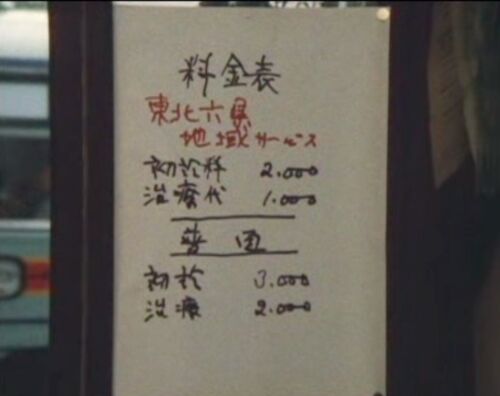 料金表
東北六県
地域サービス
初診料 2.000
治療代 1.000
普通
初診 3.000
治療 2.000